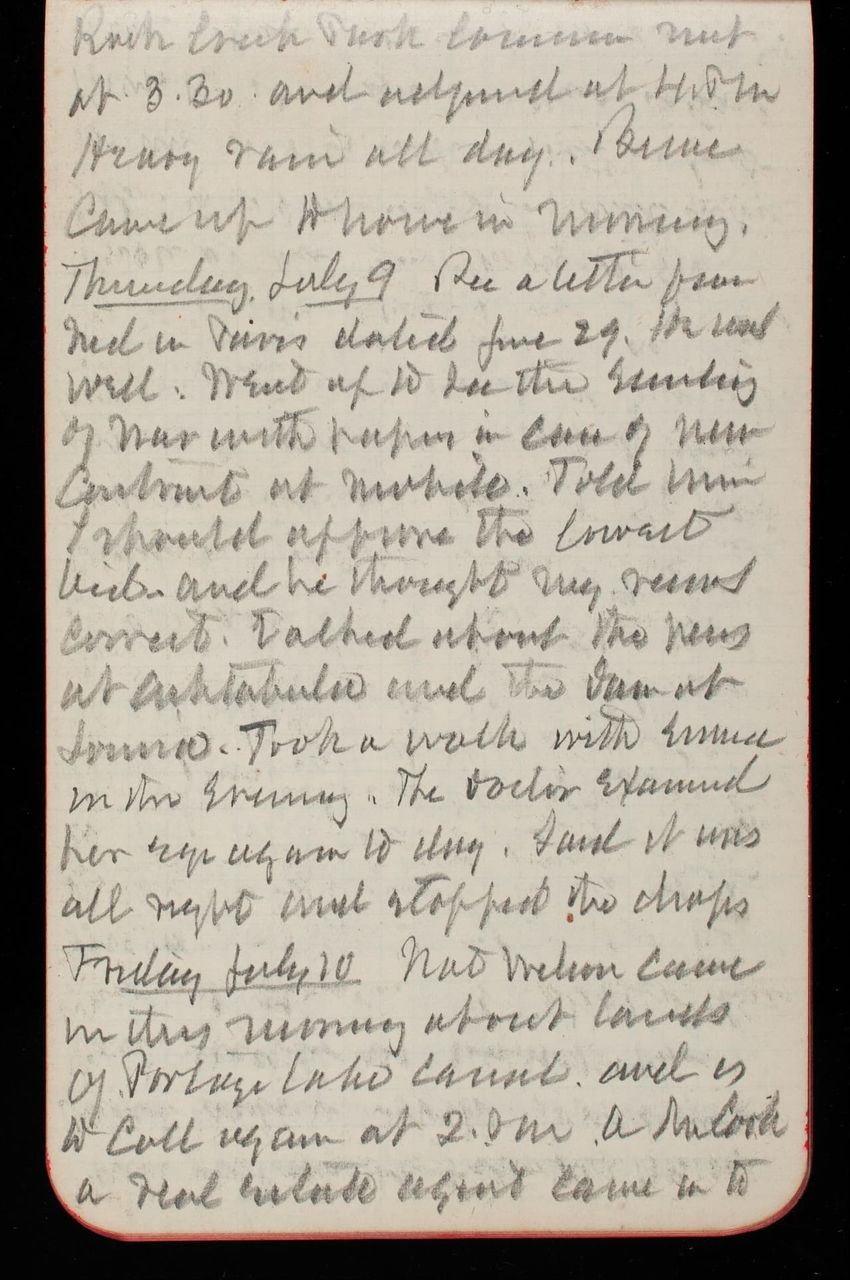 Rock Creek Park Commn met
at 3.30 and adjnd at 4 P m
Heavy rain all day.
Came up to house in morning.
Thursday, July 9 Rec a letter from
Ned in Paris dated June 29. He was
well. Went up to see the
of War with papers in case of new
Contract at Mobile. Told him
I should approve the lowest
bid. and he thought my
correct. Talked about the piers
at Ashtabula and the Dam at
Took a walk with Emma
in the Evening. The Doctor Examined
her eye again to day. Said it was
all right and stopped the drops
Friday July 10 Nat came
in this morning about lands
of Portage Lake Canal. and is
to Call again at 2. P m. A Mr Cook
a real estate agent came in to